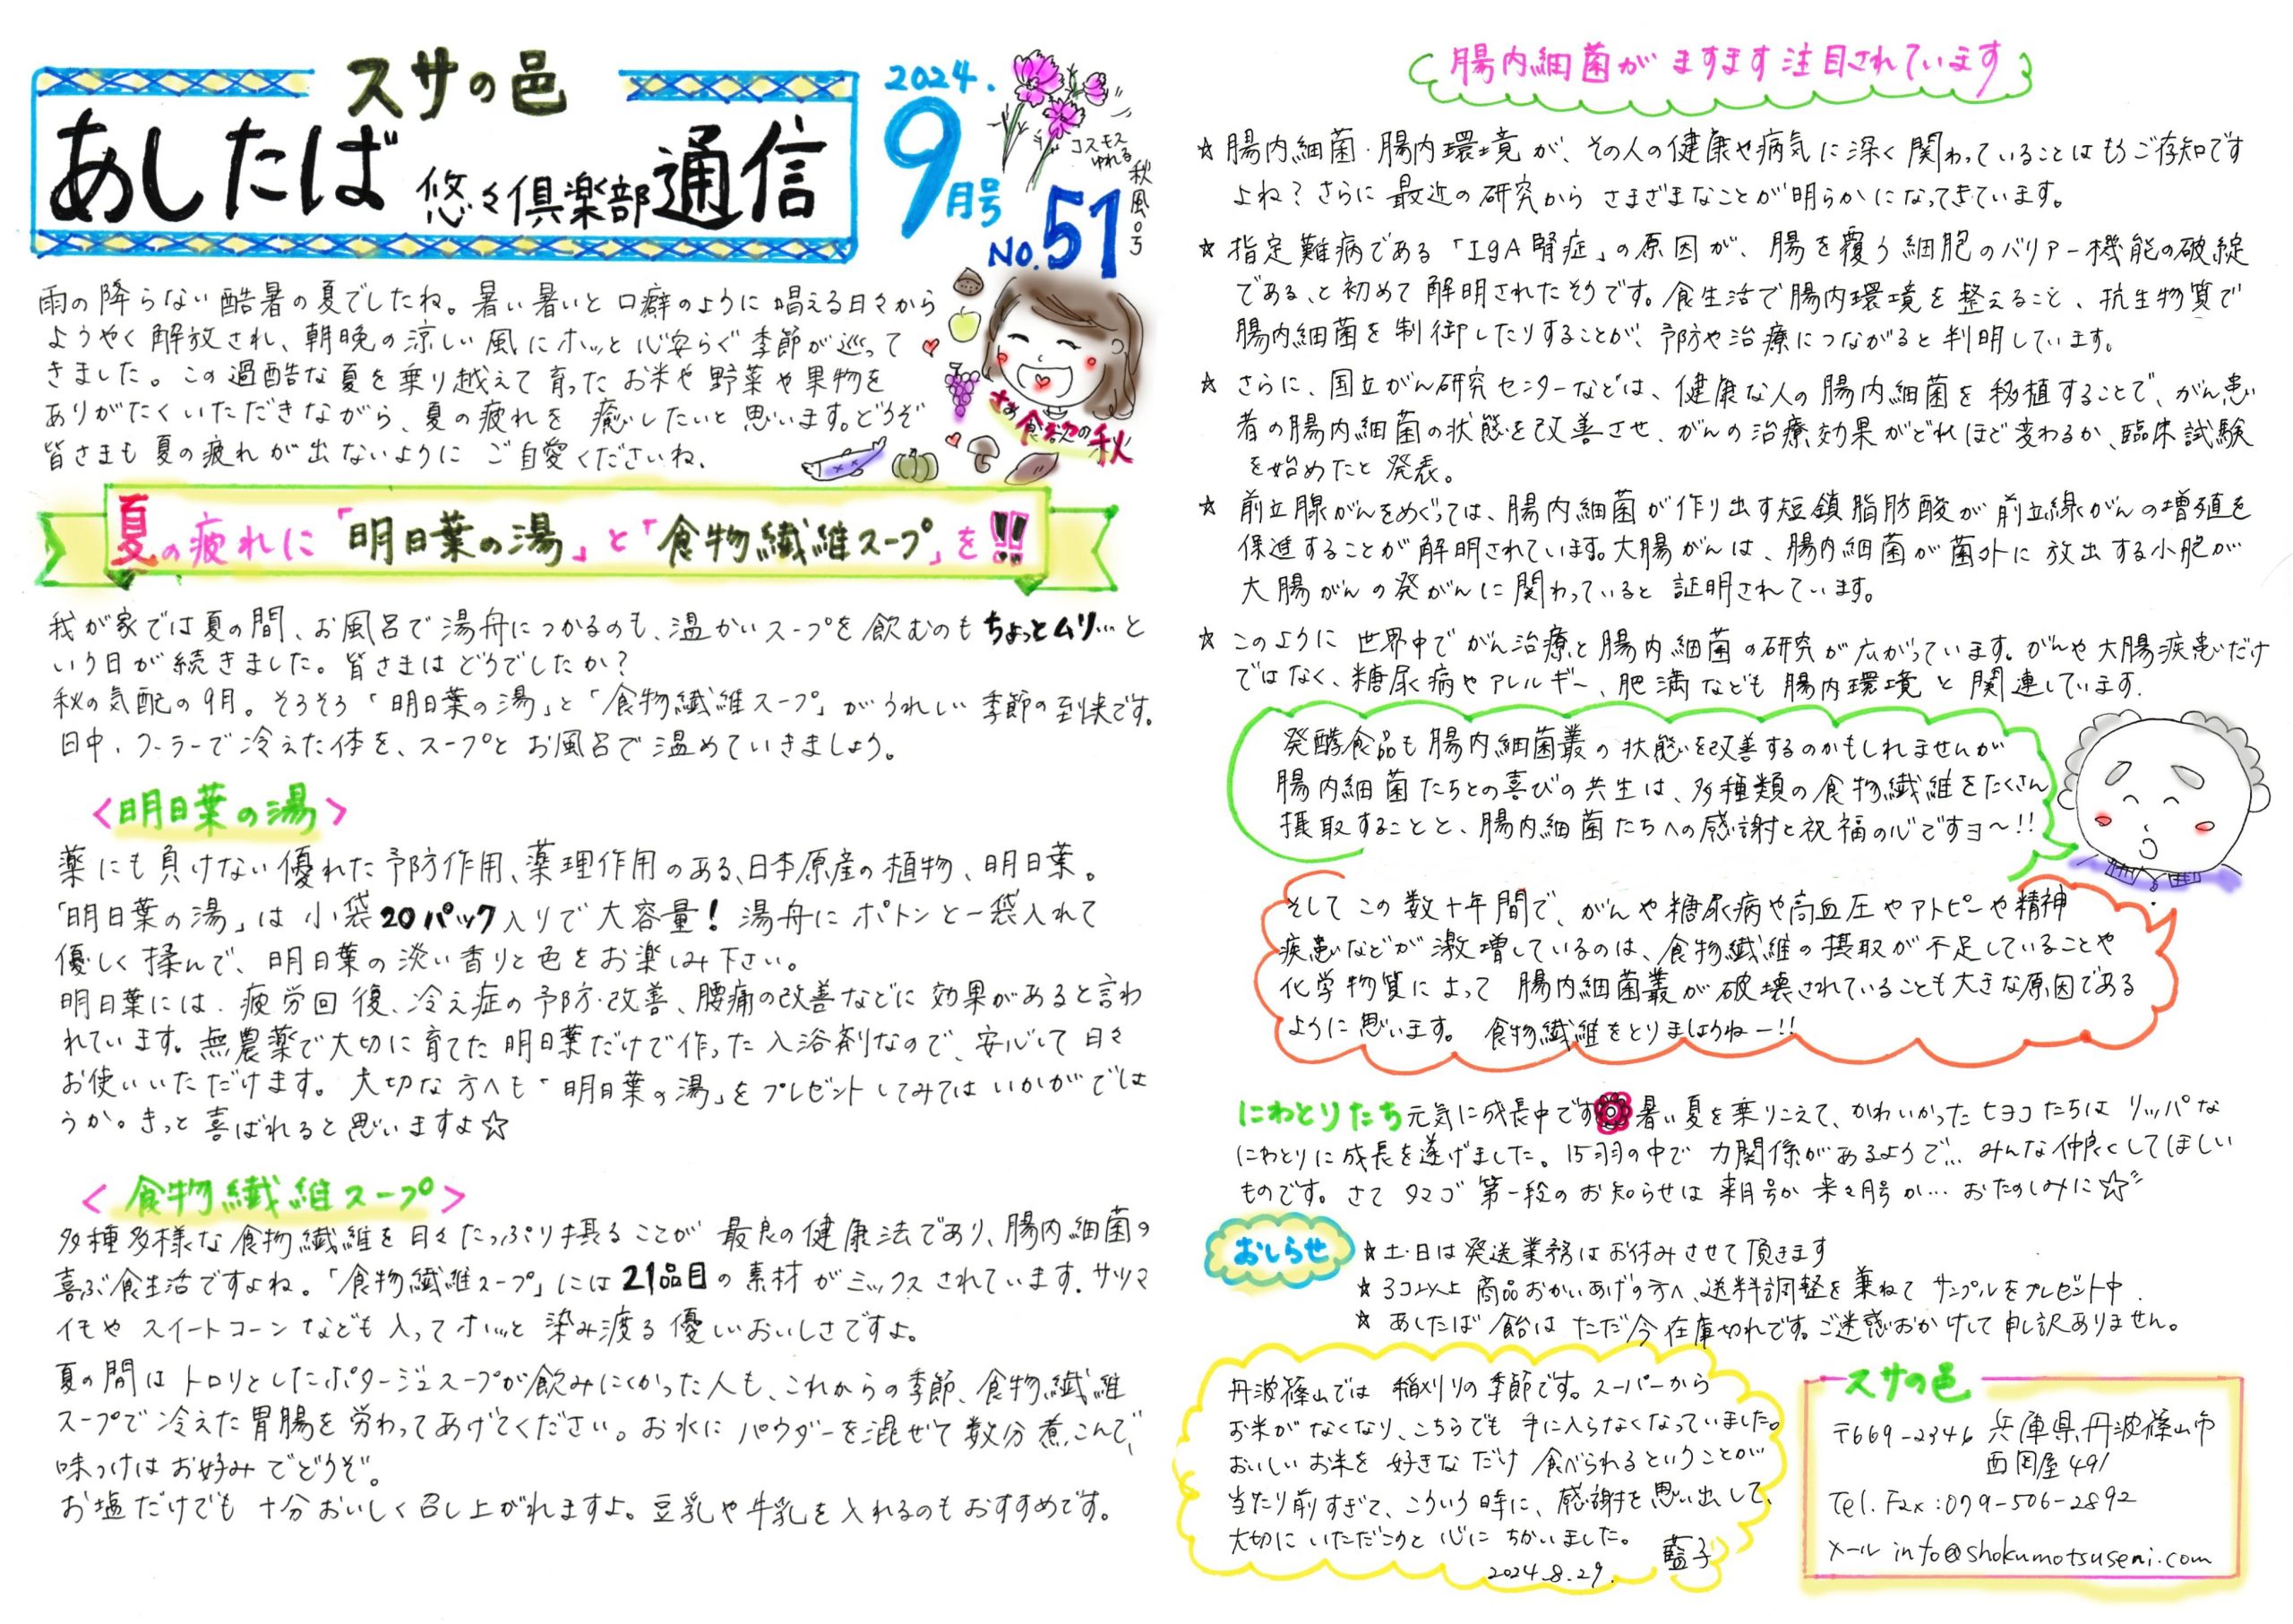 スサの邑
あしたば 悠々倶楽部 通信
2024.
9月号
No.51
コスモス
ゆれる
秋風の号
雨の降らない酷暑の夏でしたね。暑い暑いと口癖のように唱える日々から
ようやく解放され、朝晩の涼しい風にホッと心安らぐ季節が巡って
きました。この過酷な夏を乗り越えて育ったお米や野菜や果物を
ありがたくいただきながら、夏の疲れを癒したいと思います。どうぞ
皆さまも夏の疲れが出ないようにご自愛くださいね。
さあ
食欲の秋
夏の疲れに「明日葉の湯」と「食物繊維スープ」を!!
我が家では夏の間、お風呂で湯舟につかるのも、温かいスープを飲むのもちょっとムリ…と
いう日が続きました。皆さまはどうでしたか?
秋の気配の9月。そろそろ「明日葉の湯」と「食物繊維スープ」がうれしい季節の到来です。
日中、クーラーで冷えた体を、スープとお風呂で温めていきましょう。
<明日葉の湯>
薬にも負けない優れた予防作用、薬理作用のある、日本原産の植物、明日葉。
「明日葉の湯」は小袋20パック入りで大容量!湯舟にポトンと一袋入れて
優しく揉んで、明日葉の淡い香りと色をお楽しみ下さい。
明日葉には、疲労回復、冷え症の予防・改善、腰痛の改善などに効果があると言わ
れています。無農薬で大切に育てた明日葉だけで作った入浴剤なので、安心して日々
お使いいただけます。大切な方へも「明日葉の湯」をプレゼントしてみてはいかがでしょ
うか。きっと喜ばれると思いますよ☆
<食物繊維スープ>
多種多様な食物繊維を日々たっぷり摂ることが最良の健康法であり、腸内細菌の
喜ぶ食生活ですよね。「食物繊維スープ」には21品目の素材がミックスされています。サツマ
イモやスイートコーンなども入ってホッと染み渡る優しいおいしさですよ。
夏の間はトロリとしたポタージュスープが飲みにくかった人も、これからの季節、食物繊維
スープで冷えた胃腸を労わってあげてください。お水にパウダーを混ぜて数分煮こんで、
味つけはお好みでどうぞ。
お塩だけでも十分おいしく召し上がれますよ。豆乳や牛乳を入れるのもおすすめです。
腸内細菌がますます注目されています
☆腸内細菌・腸内環境が、その人の健康や病気に深く関わっていることはもうご存知です
よね?さらに最近の研究からさまざまなことが明らかになってきています。
☆指定難病である「IgA腎症」の原因が、腸を覆う細胞のバリアー機能の破綻
である、と初めて解明されたそうです。食生活で腸内環境を整えること、抗生物質で
腸内細菌を制御したりすることが、予防や治療につながると判明しています。
☆さらに、国立がん研究センターなどは、健康な人の腸内細菌を移植することで、がん患
者の腸内細菌の状態を改善させ、がんの治療効果がどれほど変わるか、臨床試験
を始めたと発表。
☆前立腺がんをめぐっては、腸内細菌が作り出す短鎖脂肪酸が前立線がんの増殖を
促進することが解明されています。大腸がんは、腸内細菌が菌外に放出する小胞が
大腸がんの発がんに関わっていると証明されています。
☆このように世界中でがん治療と腸内細菌の研究が広がっています。がんや大腸疾患だけ
ではなく、糖尿病やアレルギー、肥満なども腸内環境と関連しています。
発酵食品も腸内細菌叢の状態を改善するのかもしれませんが
腸内細菌たちとの喜びの共生は、多種類の食物繊維をたくさん
摂取することと、腸内細菌たちへの感謝と祝福の心ですヨ～!!
そしてこの数十年間で、がんや糖尿病や高血圧やアトピーや精神
疾患などが激増しているのは、食物繊維の摂取が不足していることや
化学物質によって腸内細菌叢が破壊されていることも大きな原因である
ように思います。食物繊維をとりましょうねー!!
にわとりたち元気に成長中です 暑い夏を乗りこえて、かわいかったヒヨコたちはリッパな
にわとりに成長を遂げました。15羽の中で力関係があるようで…みんな仲良くしてほしい
ものです。さてタマゴ第一段のお知らせは来月号か来々月号か…おたのしみに☆
おしらせ
☆土・日は発送業務はお休みさせて頂きます
☆3コ以上商品おかいあげの方へ、送料調整を兼ねてサンプルをプレゼント中.
☆あしたば飴はただ今在庫切れです。ご迷惑おかけして申し訳ありません。
丹波篠山では稲刈りの季節です。スーパーから
お米がなくなり、こちらでも手に入らなくなっていました。
おいしいお米を好きなだけ食べられるということが
当たり前すぎて、こういう時に、感謝を思い出して、
大切にいただこうと心にちかいました。
藍子
2024.8.29.
スサの邑
〒669-2346 兵庫県丹波篠山市
西岡屋491
Tel.Fax:079-506-2892
メール info@shokumotsuseni.com